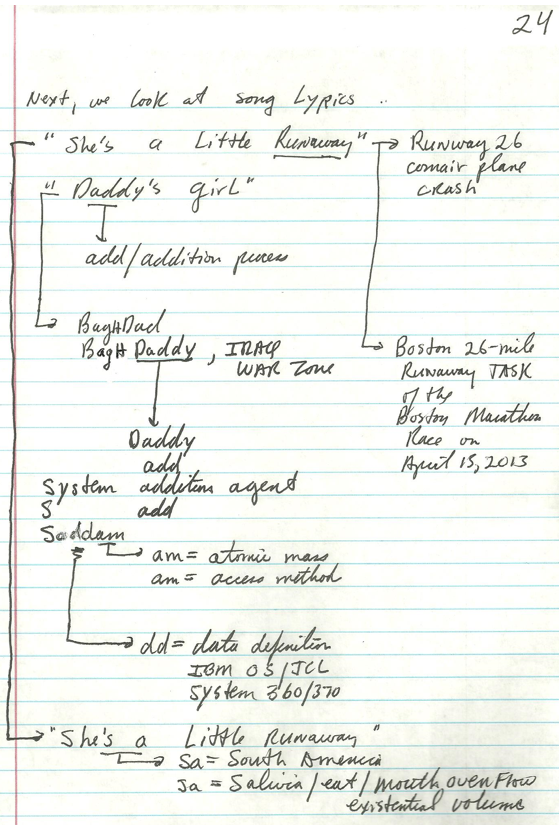 24
Next, we look at song Lyrics ..
"She's a Little Runaway" → Runway 26
comair plane
crash
"Daddy's girl"
add/addition process
BagHDad
BagH Daddy, IRAQ
WAR Zone
Boston 26-mile
Runaway TASK
of the
Boston Marathon
Race on
April 15, 2013
Daddy
add
System additions agent
S add
Saddam
am = atomic mass
am = access method
dd = data definition
IBM OS/JCL
System 360/370
"She's a Little Runaway"
Sa = South America
Sa = Salivia/eat/mouth overflow
existential volume